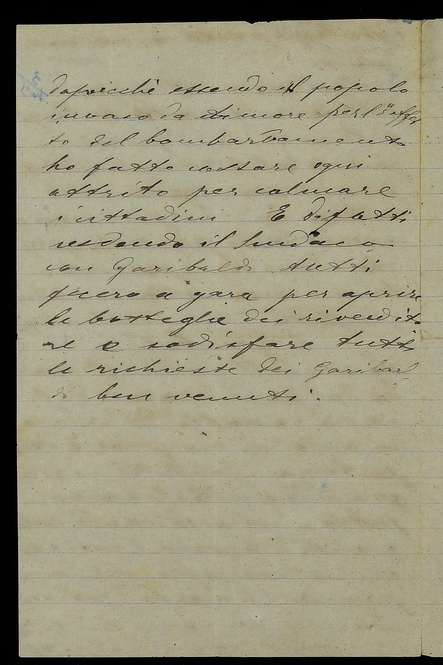 dapoichè essendo il popolo
invaso da timore per l'effet
to del bombardamento
ho fatto cessare ogni
attrito per calmare
i cittadini E difatti
vedendo il Sindaco
con Garibaldi tutti
fecero a gara per aprire
le botteghe dei rivendito
re e sodisfare tutte
le richieste dei Garibal
di ben venuti.